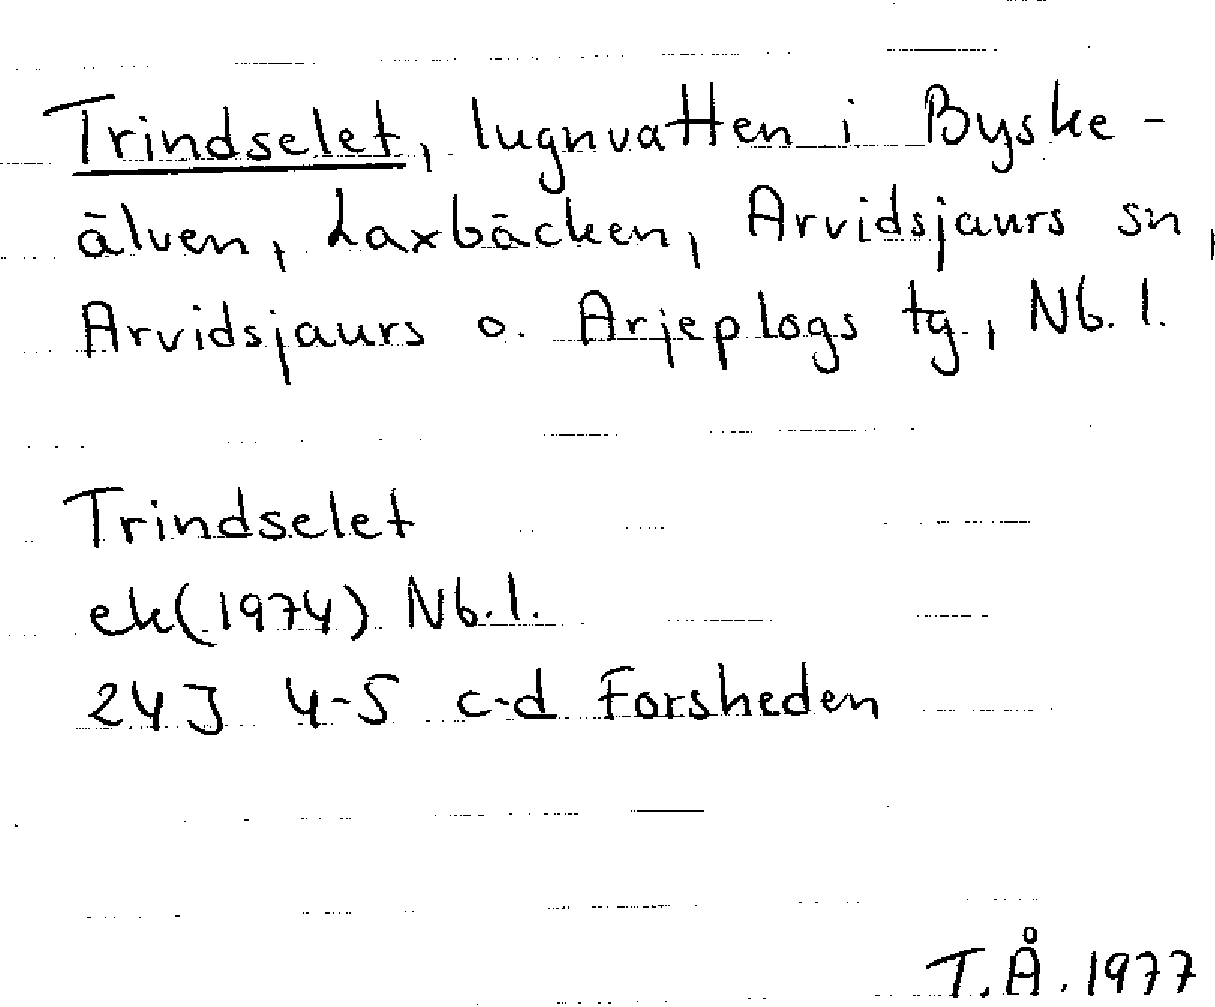 Trindselet, lugnvatten i Byske-
älven, Laxbäcken, Arvidsjaurs sn,
Arvidsjaurs o. Arjeplogs tg., Nb. l.
Trindselet
ek(1974) Nb.l.
24J 4-5 c-d Forsheden
T.Å. 1977